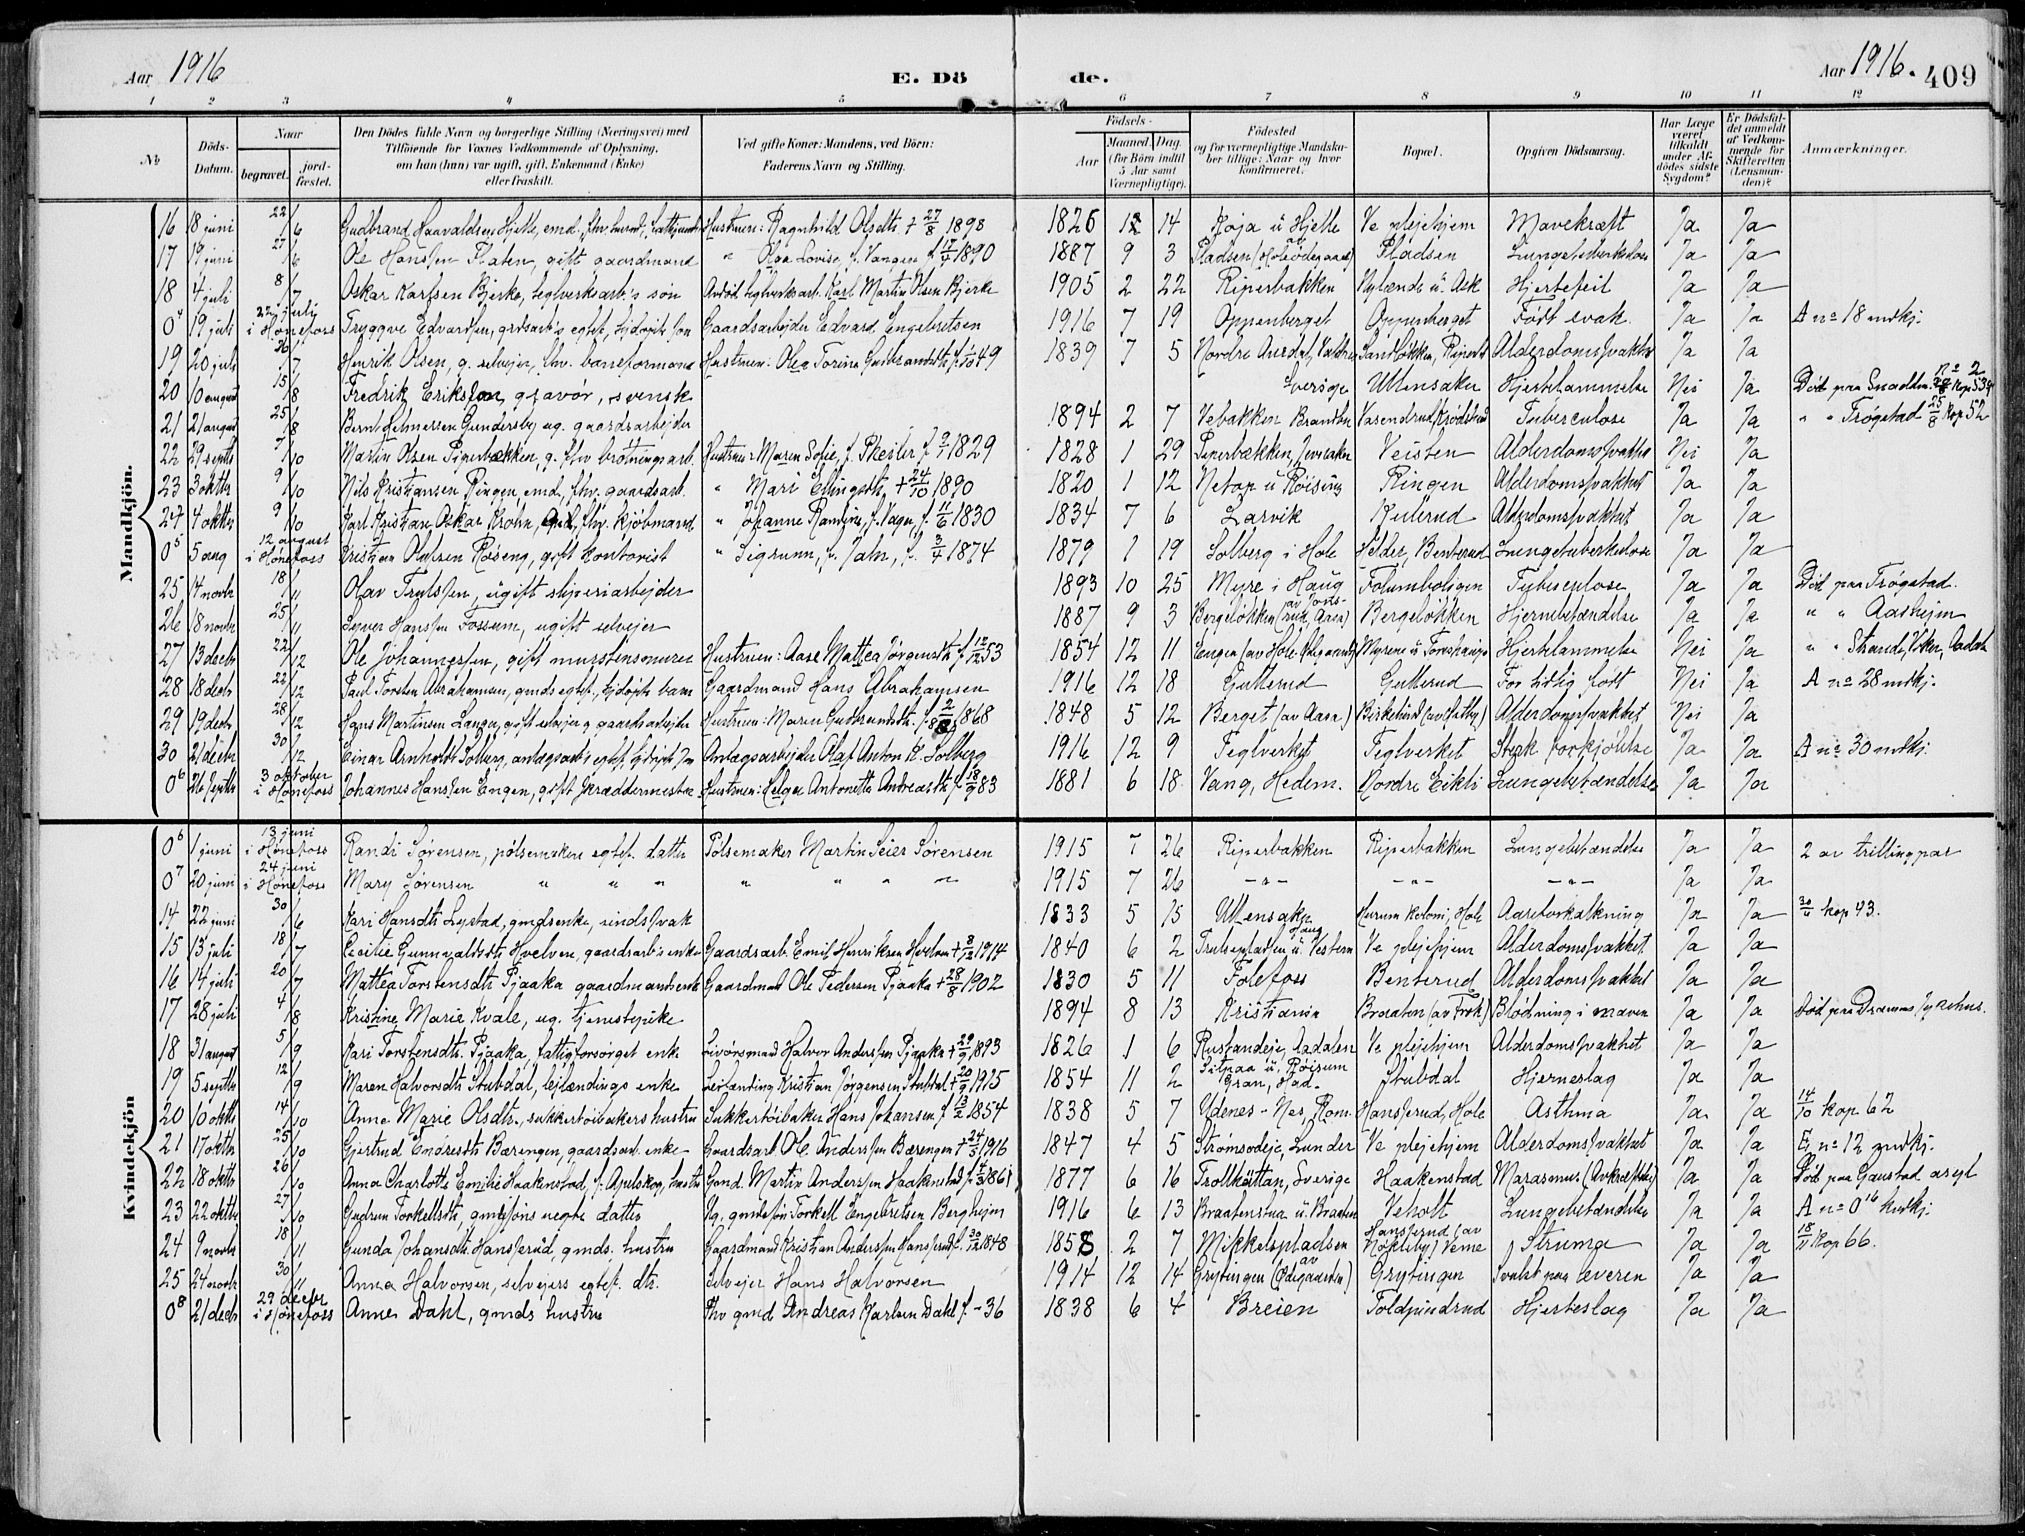 Aar 1916 E. Dö de. Aar 1916. 409
1 2 3 4 5 6 7 8 9 10 11 12
No Döds-Datum. Naar begravet. jord-fæstet. Den Dödes fulde Navn og borgerlige Stilling (Næringsvei) med Tilföiende for Voxnes Vedkommende af Oplysning, om han (hun) var ugift, gift, Enkemand (Enke) eller fraskilt. Ved gifte Koner: Mandens, ved Börn: Faderens Navn og Stilling. Födsels- Aar Maaned. Dag. (for Börn indtil 5 Aar samt Værnepligtige). Födested og for værnepligtige Mandskaber tillige: Naar og hvor konfirmeret. Bopæl. Opgiven Dödsaarsag. Har Læge været tilkaldt under Afdödes sidste Sygdom? Er Dödsfaldet anmeldt af Vedkommende for Skifteretten (Lensmanden)? Anmærkninger.
Mandkjön.
16 18 juni 22/6 Gudbrand Haavaldsen Hjelle, emd. Hustruen: Ragnhild Olsdtr + 27/8 1898 1826 12 14 Røja u Hjelle Ve plejehjem Mavekræft Ja Ja
17 19 juni 27/6 Ole Hanssen Platen, gift gaardmand " Olga Lovise, f. Vangen f. 17/4 1890 1887 9 3 Pladsen Pladsen Lungetuberkulose Ja Ja
18 4 juli 8/7 Oskar Karlsen Bjerke, teglverksarb.'s søn Avdød teglverksarb. Karl Martin Olsen Bjerke 1905 2 22 Riperbakken Nylænde u. Ask Hjertefeil Ja Ja
0⁴ 19 juli 22 july i Hønefoss Tryggve Edvardsen, Gaardsarbejder Edvard Engebretsen 1916 7 19 Oppenberget Oppenberget Født svak. Ja Ja A no 18 mdkj.
19 20 juli 26/7 Henrik Olsen, g. selvejer, fhv. baneformand Hustruen: Olea Torine Gulbrandsdtr f. 1/10 49 1839 7 5 Nordre Aurdal, Valdres Sandløkken, Ripersb. Alderdomssvakhet Ja Ja
20 10 august 15/8 Fredrik Eriksson, gravør, svensk Sverige Ullensaker Hjertelammelse Nei Ja
21 21 august 25/8 Bernt Helmersen Gundersby ug. gaardsarbejder 1894 2 7 Vebakken Brandbu Vasendrud, Krødsherad Tuberculose Ja Ja " " Trøgstad 25/8 kop 52
22 29 septbr 7/10 Martin Olsen Piperbækken, g. fhv brøtningsarb. Hustruen: Maren Sofie, f. 1829 1828 1 29 Piperbækken, Jevnaker Veisten Alderdomssvakhet Nei Ja
23 3 oktbr 9/10 Nils Kristiansen Ringen, emd, fhv. gaardsarb. " Mari Ellingsdtr, + 24/10 1890 1820 1 12 Netop u Røising Ringen Alderdomssvakhet Ja Ja
24 4 oktbr 9/10 Karl Kristian Oskar Krohn, fhv. kjøbmand " Johanne Ramfine, f. Vager, f. 11/6 1830 1834 7 6 Larvik Kulerud Alderdomssvakhet Ja Ja
0⁵ 5 aug 12 august i Hønefoss Kristian Olafsen Roseng, gift kontorist " Sigrunn, f. Jahn, f. 3/4 1874 1879 1 19 Solberg i Hole Helder, Benterud Lungetuberkulose Ja Ja
25 14 novbr 18/11 Olav Trulssen, ugift sliperiarbejder 1893 10 25 Myre i Haug Folumboligen Tuberculose Ja Ja Død paa Trøgstad.
26 18 novbr 25/11 Syver Hanssen Fossum, ugift selvejer 1887 9 3 Bergeløkken Bergeløkken Hjernebetændelse Ja Ja " " Aasheim
27 13 decbr 22/12 Ole Johannessen, gift murstensmurer Hustruen: Aase Mattea Jørgensdtr f. 12/12 53 1854 12 11 Myrene u Hjertelammelse Nei Ja " " Strande, Viker, Aadal
28 18 decbr 22/12 Paul Torsten Abrahamsen, gmds egtef., hjdøpt barn Gaardmand Hans Abrahamsen 1916 12 18 Gulterud Gulterud For tidlig født Nei Ja A no 28 mdkj.
29 19 decbr 28/12 Hans Martinsen Langen, gift selvejer g gaardsarbejder Hustruen: Maren Gulbrandsdtr. f. 2/8 1868 1848 5 12 Berget (av Aasa) Birkelund Alderdomssvakhet Nei Ja
30 21 decbr 30/12 Einar Arnholdt Solberg, Anlægsarbejder Olaf Anton K. Solberg 1916 12 9 Teglverket Teglverket Sterk forkjølelse Ja Ja A no 30 mdkj.
0⁶ 26 septbr 3 oktober i Hønefoss Johannes Hanssen Engen, gift skræddermester Hustruen: Helga Antonette Andreasdtr f. 18/9 83 1881 6 18 Vang, Hedem. Nordre Eikli Lungebetændelse Ja Ja
Kvindekjön
0⁶ 1 juni 13 juni i Hønefoss Randi Sørensen, pølsemakers egtef. datter Pølsemaker Martin Seier Sørensen 1915 7 26 Riperbakken Riperbakken Lungebetændelse Ja Ja 2 av trillingpar
0⁷ 20 juni 24 juni i Hønefoss Mary Sørensen " " " " " " " 1915 7 26 -"- -"- -"- Ja Ja
14 22 juni 30/6 Kari Hansdtr Lystad, gmdsenke, sindssvak 1833 5 15 Ullensaker Hurum koloni, Hole Aareforkalkning Ja Ja 30/6 kop 43.
15 13 juli 18/7 Cecilie Gunnvaldsdtr Hvelven, gaardsarb's enke Gaardsarb. Emil Henriksen Hvelven + 8/12 1914 1840 6 2 Trulserpladsen u. Vestern Haug Ve plejehjem Alderdomssvakhet Ja Ja
16 14 juli 20/7 Mattea Torstensdtr Pjaaka gaardmandsenke Gaardmand Ole Pedersen Pjaaka + 28/8 1902 1830 5 11 Folefoss Benterud Alderdomssvakhet Ja Ja
17 28 juli 4/8 Kristine Marie Kvale, ug. tjenestepike 1894 8 13 Kristiania Braaten (av Frok) Blødning i maven Ja Ja Død paa Drammens sykehus.
18 31 august 5/9 Kari Torstensdtr. Pjaaka, fattigforsørget enke Livørsmand Halvor Anderssen Pjaaka + 29/9 1893 1826 1 6 Rustandeje, Aadalen Ve plejehjem Alderdomssvakhet Ja Ja
19 5 septbr 12/9 Maren Halvorsdtr Stubdal, lejlændings enke Leilænding Kristian Jørgensen Stubdal + 20/9 1915 1854 11 2 Sætraa u. Røisum Gran, Had. Stubdal Hjerneslag Ja Ja
20 10 oktbr 14/10 Anne Marie Olsdtr., sukkertøibakers hustru Sukkertøibaker Hans Johansen f. 13/2 1854 1838 5 7 Udenes - Nes, Rom. Hansserud, Hole Asthma Ja Ja 14/10 kop 62
21 17 oktbr 25/10 Gjertrud Endresdtr Bærengen, gaardsarb. enke Gaardsarb. Ole Anderssen Bærengen + 24/5 1916 1847 4 5 Strømsodeje, Lunder Ve plejehjem Alderdomssvakhet Ja Ja E no 12 mdkj.
22 18 oktbr 26/10 Anna Charlotte Emilie Haakenstad, f. Apelskog, hustru Gmd. Martin Anderssen Haakenstad f. 1861 1877 6 16 Trollhättan, Sverige Haakenstad Marasmus (Avkræftelse) Ja Ja Død paa Gaustad asyl
23 22 oktbr 27/10 Gudrun Torkellsdtr, gmdssøns uegte datter Ug. gmdssøn Torkell Engebretsen Berghejm 1916 6 13 Braatenstua u. Braaten Veholt Lungebetændelse Ja Ja A no 0¹⁶ kvdkj.
24 9 novbr 18/11 Gunda Johansdtr. Hansserud, gmds. hustru Gaardmand Kristian Anderssen Hansserud f. 20/12 1848 1858 2 7 Mikkelspladsen Hansserud (av Nøkleby) Veme Struma Ja Ja 18/11 kop 66.
25 24 novbr 30/11 Anna Halvorsen, selvejers egtef. dtr. Selvejer Hans Halvorsen 1914 12 14 Grytingen (av Ødegaarden) Grytingen Svulst paa leveren Ja Ja
0⁸ 21 decbr 29 decbr i Hønefoss Anne Dahl, gmds hustru Fhv gmd Andreas Karlsen Dahl f. -36 1838 6 4 Breien Toldpindrud Hjerteslag Ja Ja